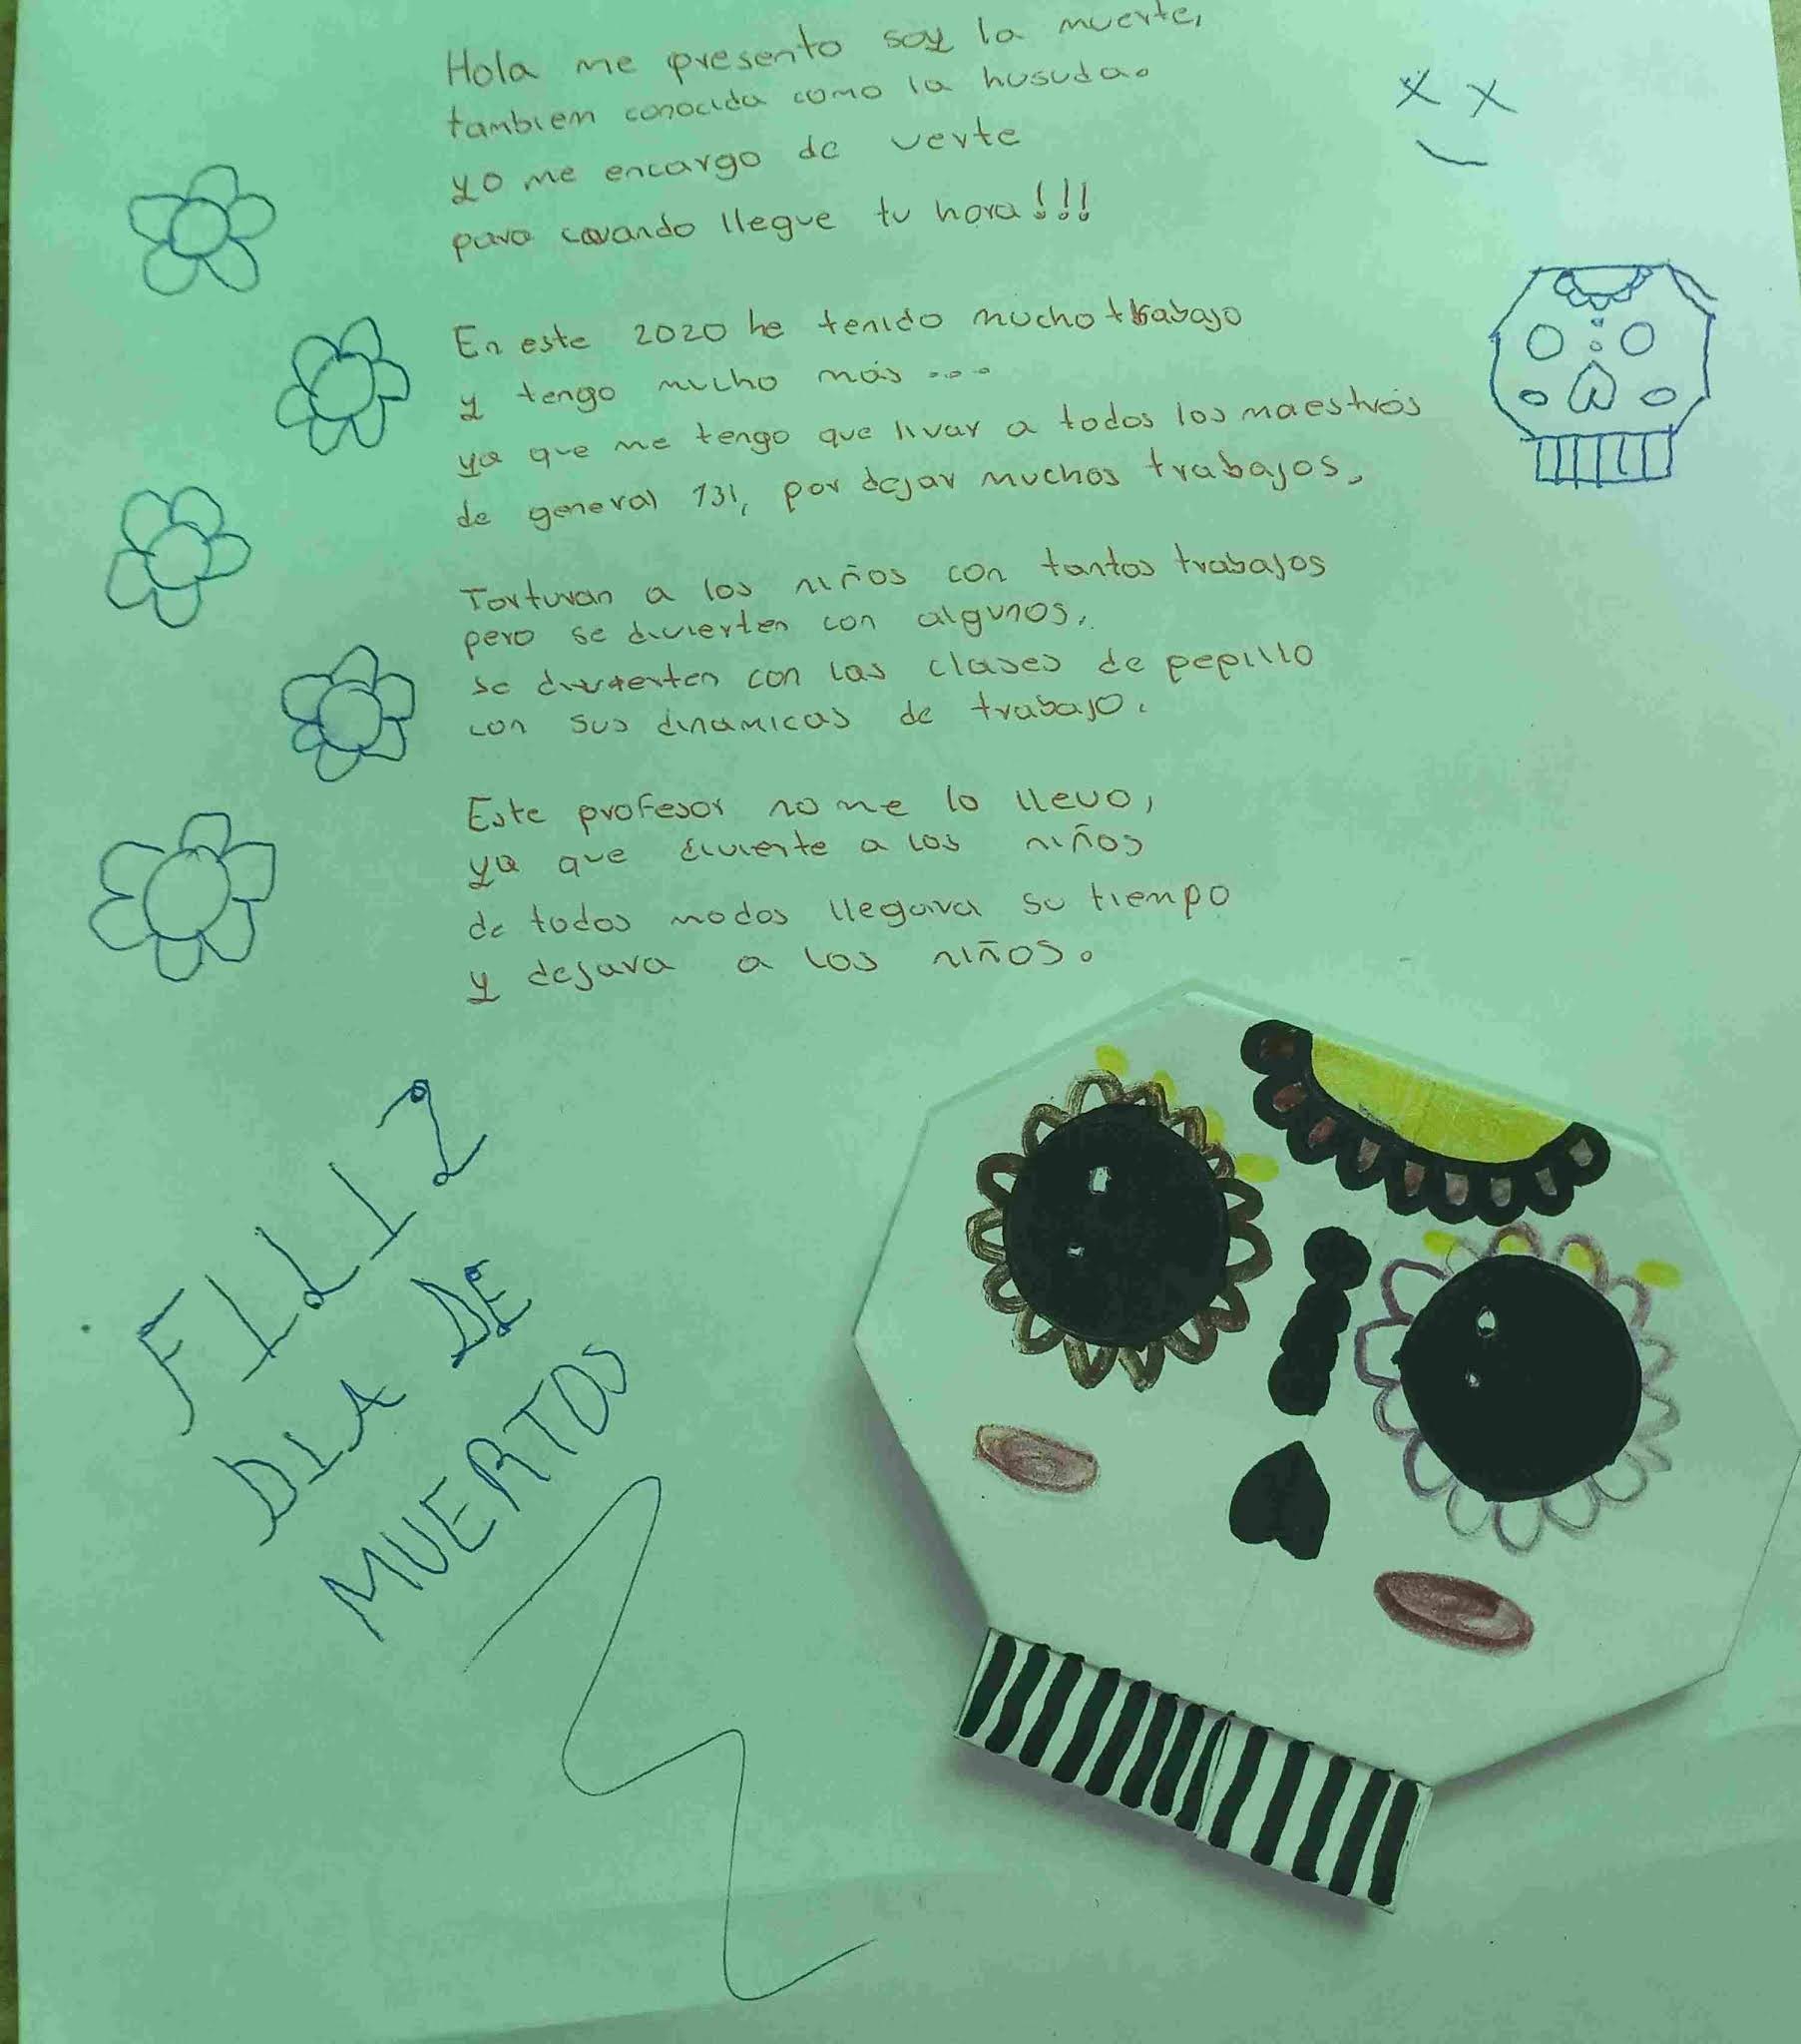 Hola me presento soy la muerte,
tambien conocida como la husuda.
yo me encargo de verte
para cuando llegue tu hora!!!
En este 2020 he tenido mucho trabajo
y tengo mucho más ...
ya que me tengo que livar a todos los maestros
de general 131, por dejar muchos trabajos.
Torturan a los niños con tantos trabajos
pero se divierten con algunos.
se divierten con las clases de pepillo
con sus dinamicas de trabajo.
Este profesor no me lo llevo,
ya que divierte a los niños
de todos modos llegara su tiempo
y dejara a los niños.
FILLIZ
DIA DE
MUERTOS